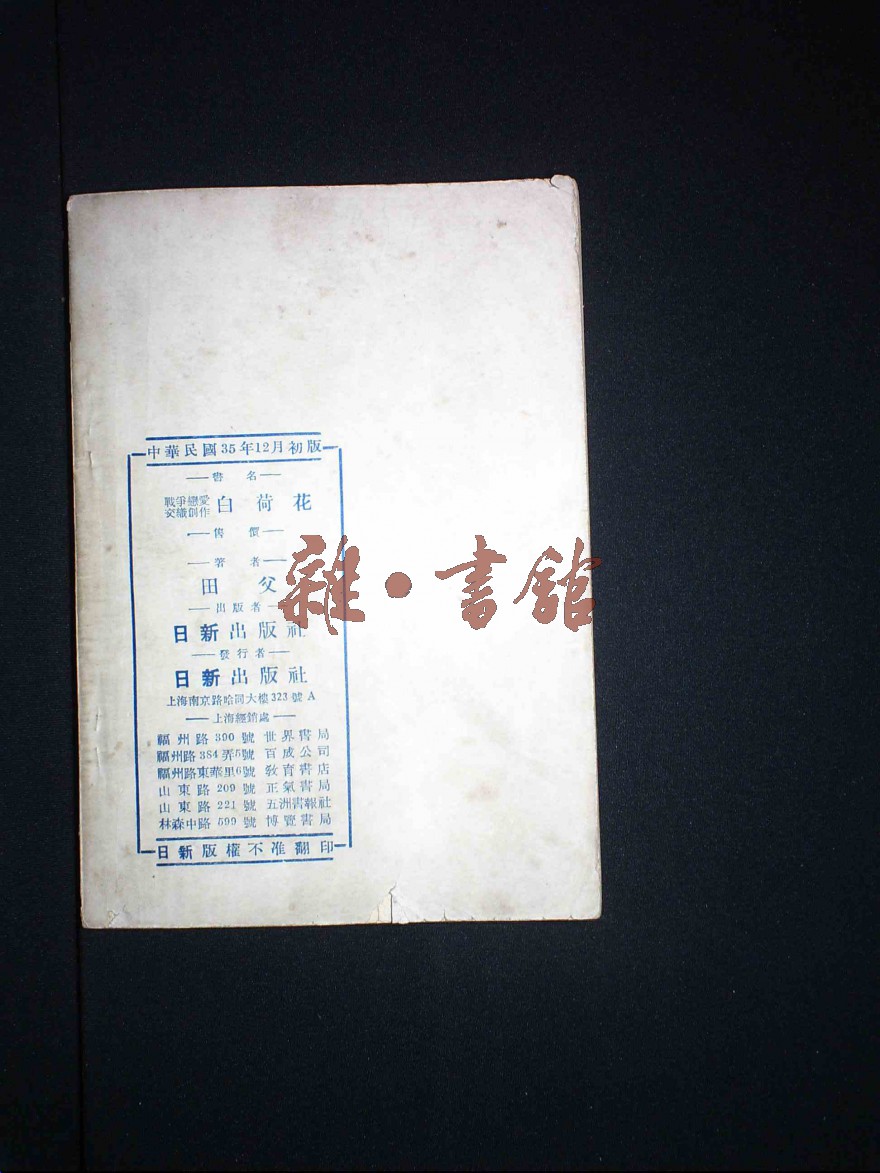 中華民國35年12月初版
書名
戰爭戀愛
交織創作
白荷花
售價
著者
田父
出版者
日新出版社
發行者
日新出版社
上海南京路哈同大樓323號A
上海經銷處
福州路390號 世界書局
福州路384弄5號 百成公司
福州路東華里6號 教育書店
山東路209號 正氣書局
山東路221號 五洲書報社
林森中路599號 博覽書局
日新版權不准翻印
雜·書館